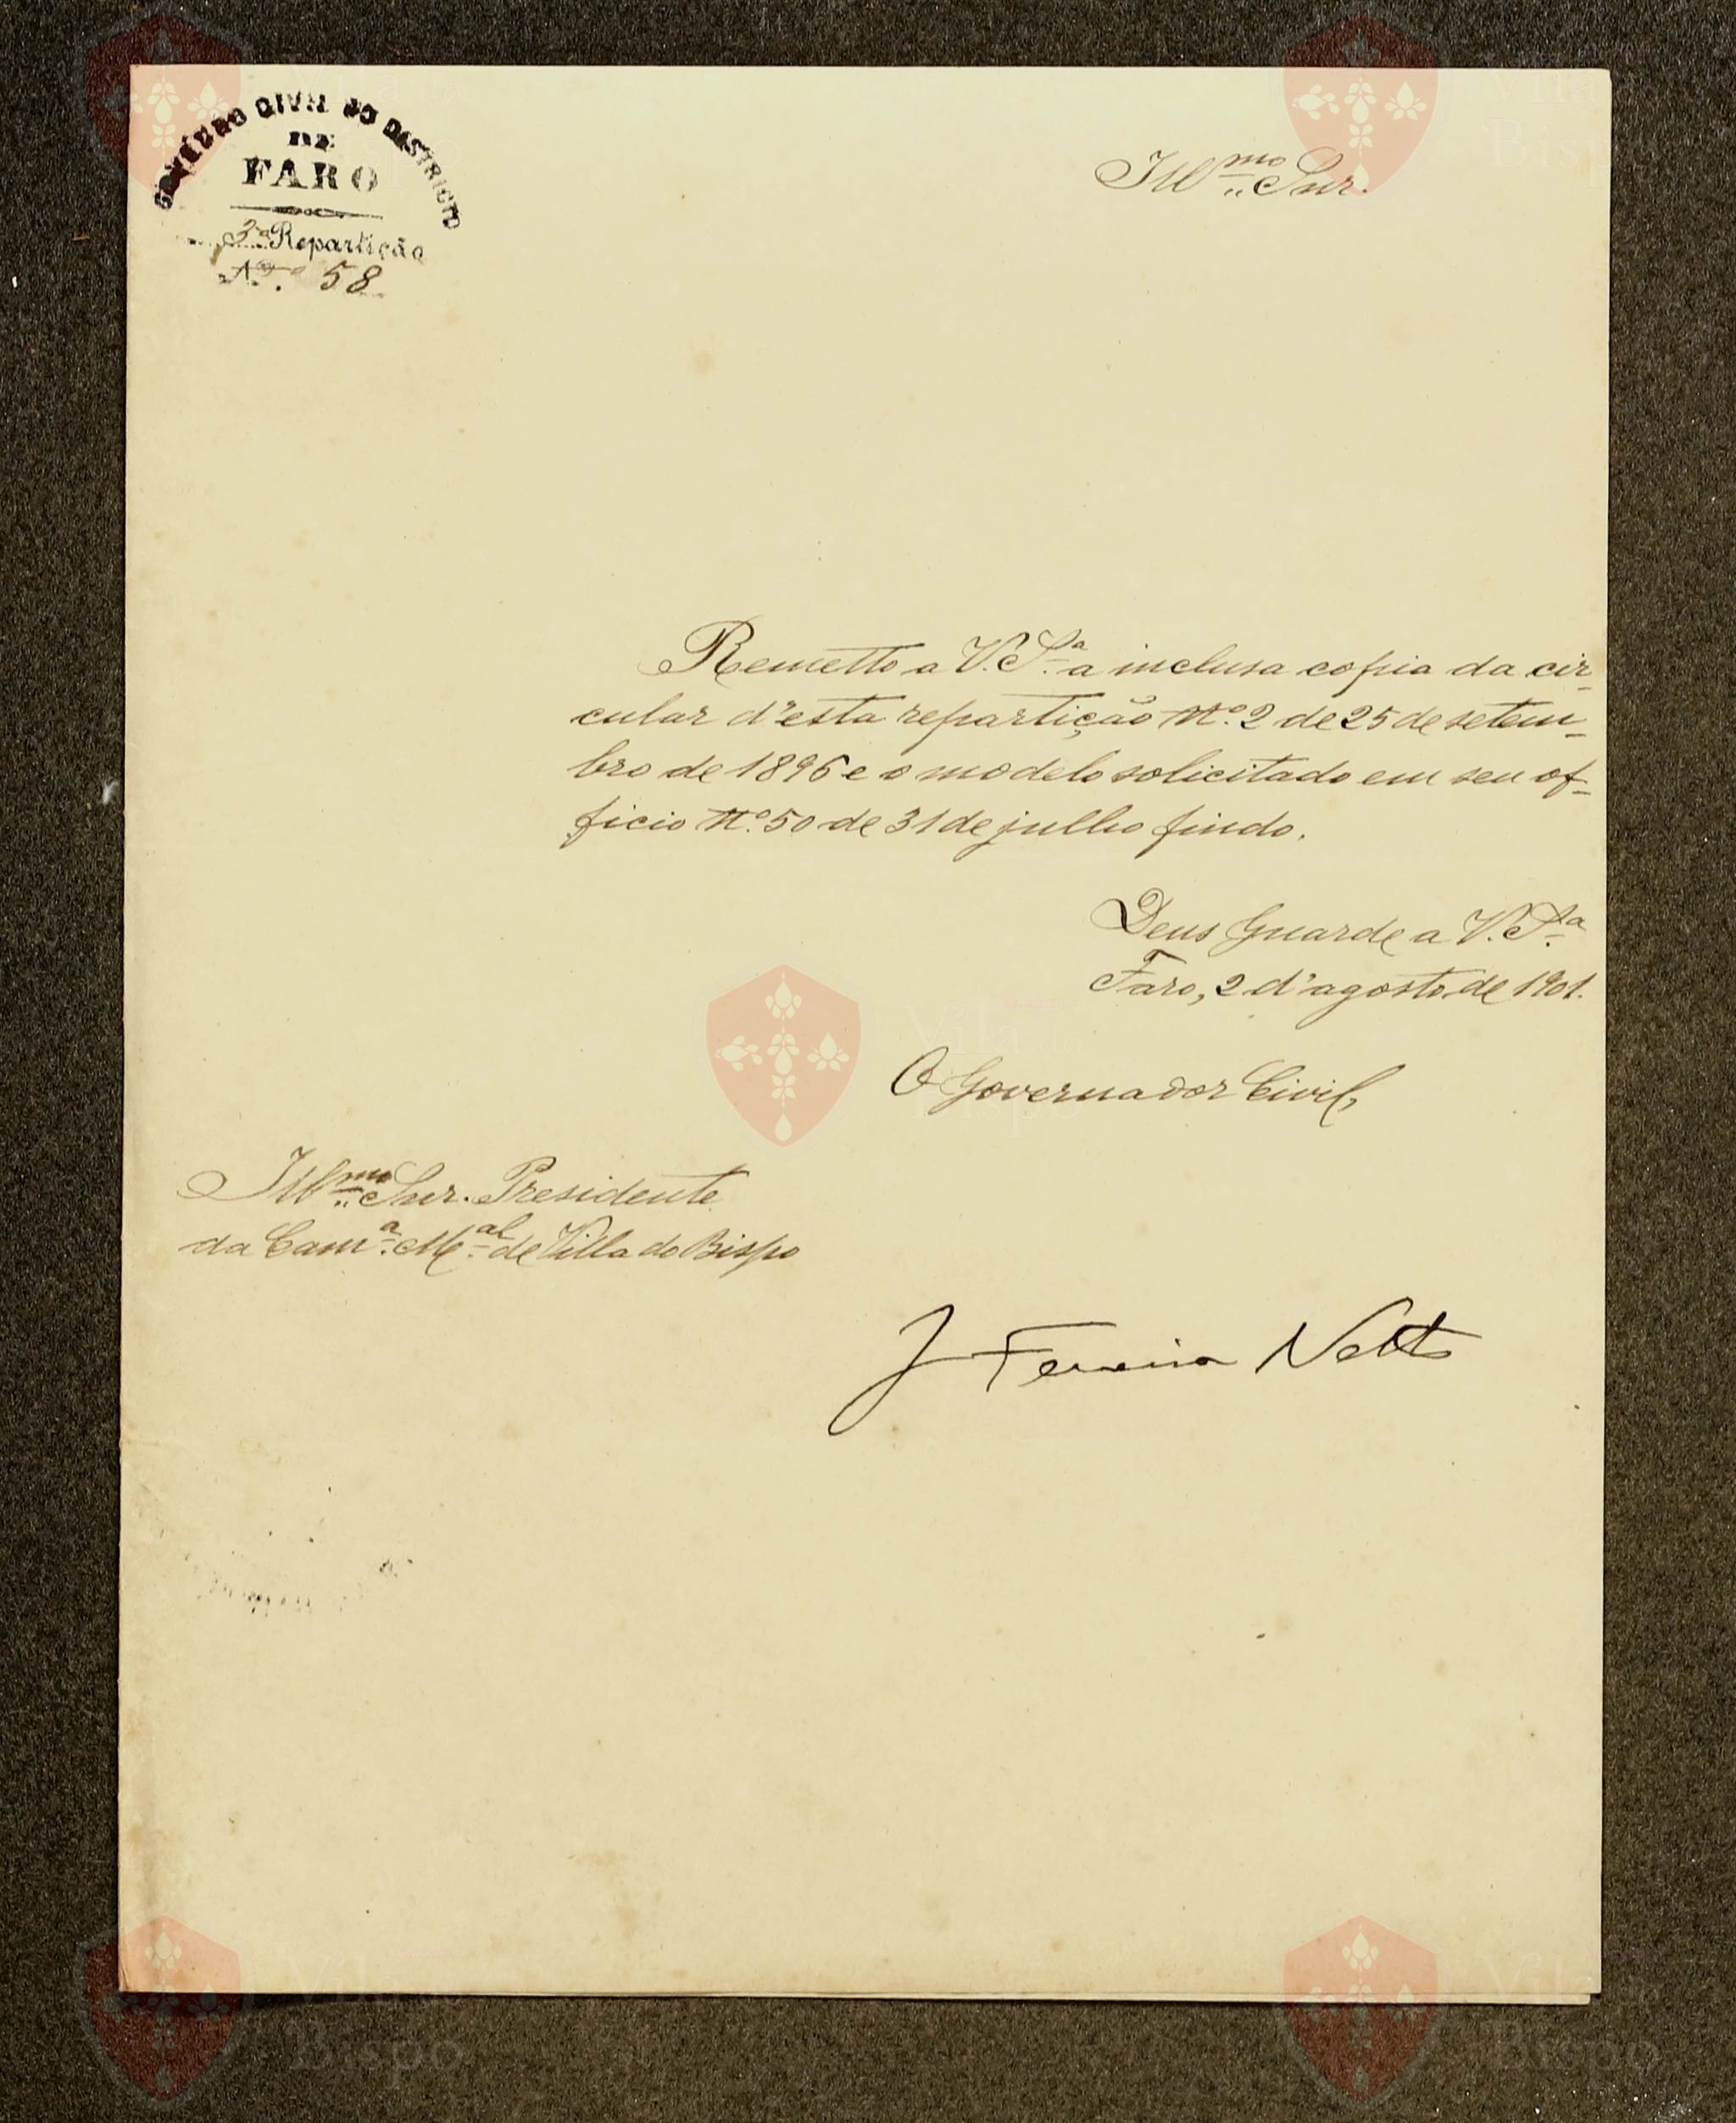 GOVERNO CIVIL DO DISTRICTO
DE
FARO
3ª Repartição
N.º 58
Illmo Snr.
Remetto a V. Sª a inclusa copia da cir-
cular d'esta repartição Nº 2 de 25 de setem-
bro de 1896 e o modelo solicitado em seu of-
ficio Nº 50 de 31 de julho findo.
Deus Guarde a V. Sª
Faro, 2 d'agosto de 1901.
O Governador Civil,
Illmo Snr. Presidente
da Camª Mal de Villa do Bispo
J Ferreira Netto
Vila do
Bispo